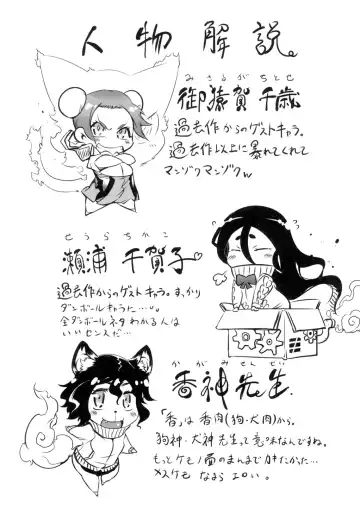 人物解説。
みさるがちとせ
御猿賀 千歳
過去作からのゲストキャラ。
過去作以上に暴れてくれて
マンゾクマンゾクw
せうらちかこ
瀬浦 千賀子
過去作からのゲストキャラ。すっかり
ダンボールキャラだ…
全ダンボールネタわかる人は
いいセンスだ…
かがみせんせい
香神先生.
「香」は香肉(狗・犬肉)から。
狗神・犬神先生って意味なんですね。
もっとケモノ面のまんまで
メスケモ なまら エロい。